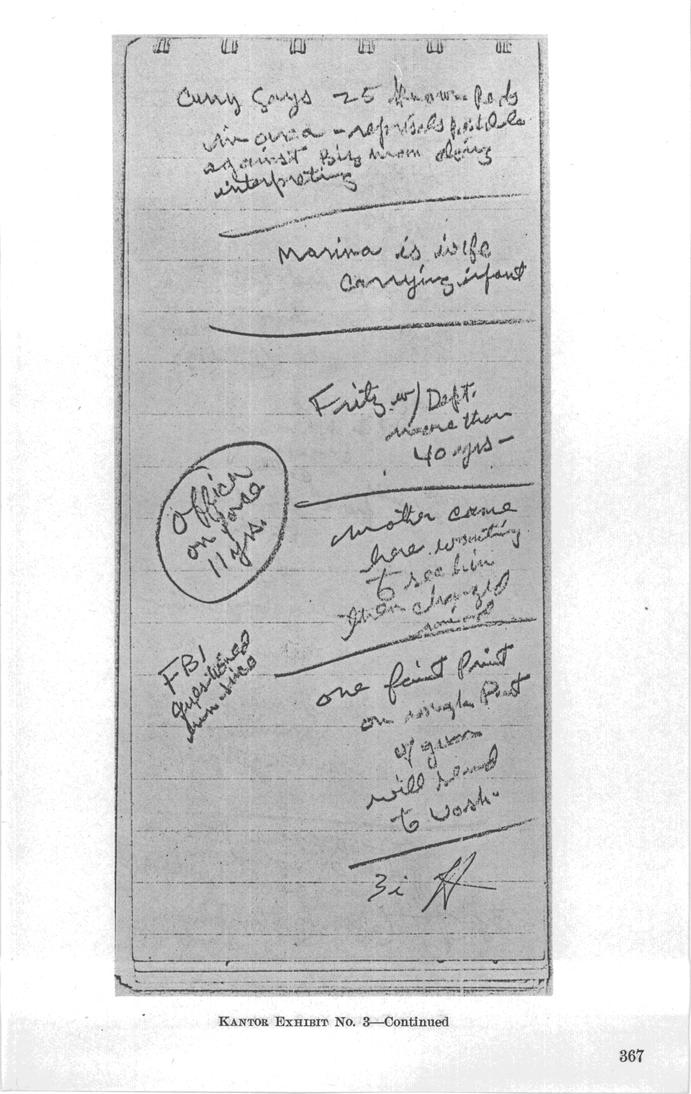 Curry says 25 known Reds
in area - reprisals possible
against Big mom doing
interpreting
Marina is wife
carrying infant
Fritz w/ Dept.
more than
40 yrs -
Officer
on force
11 yrs.
mother came
here wanting
to see him
then changed
mind
FBI
questioned
him since
one faint Print
on rough Part
of gun
will send
to Wash.
3i
KANTOR EXHIBIT No. 3—Continued
367